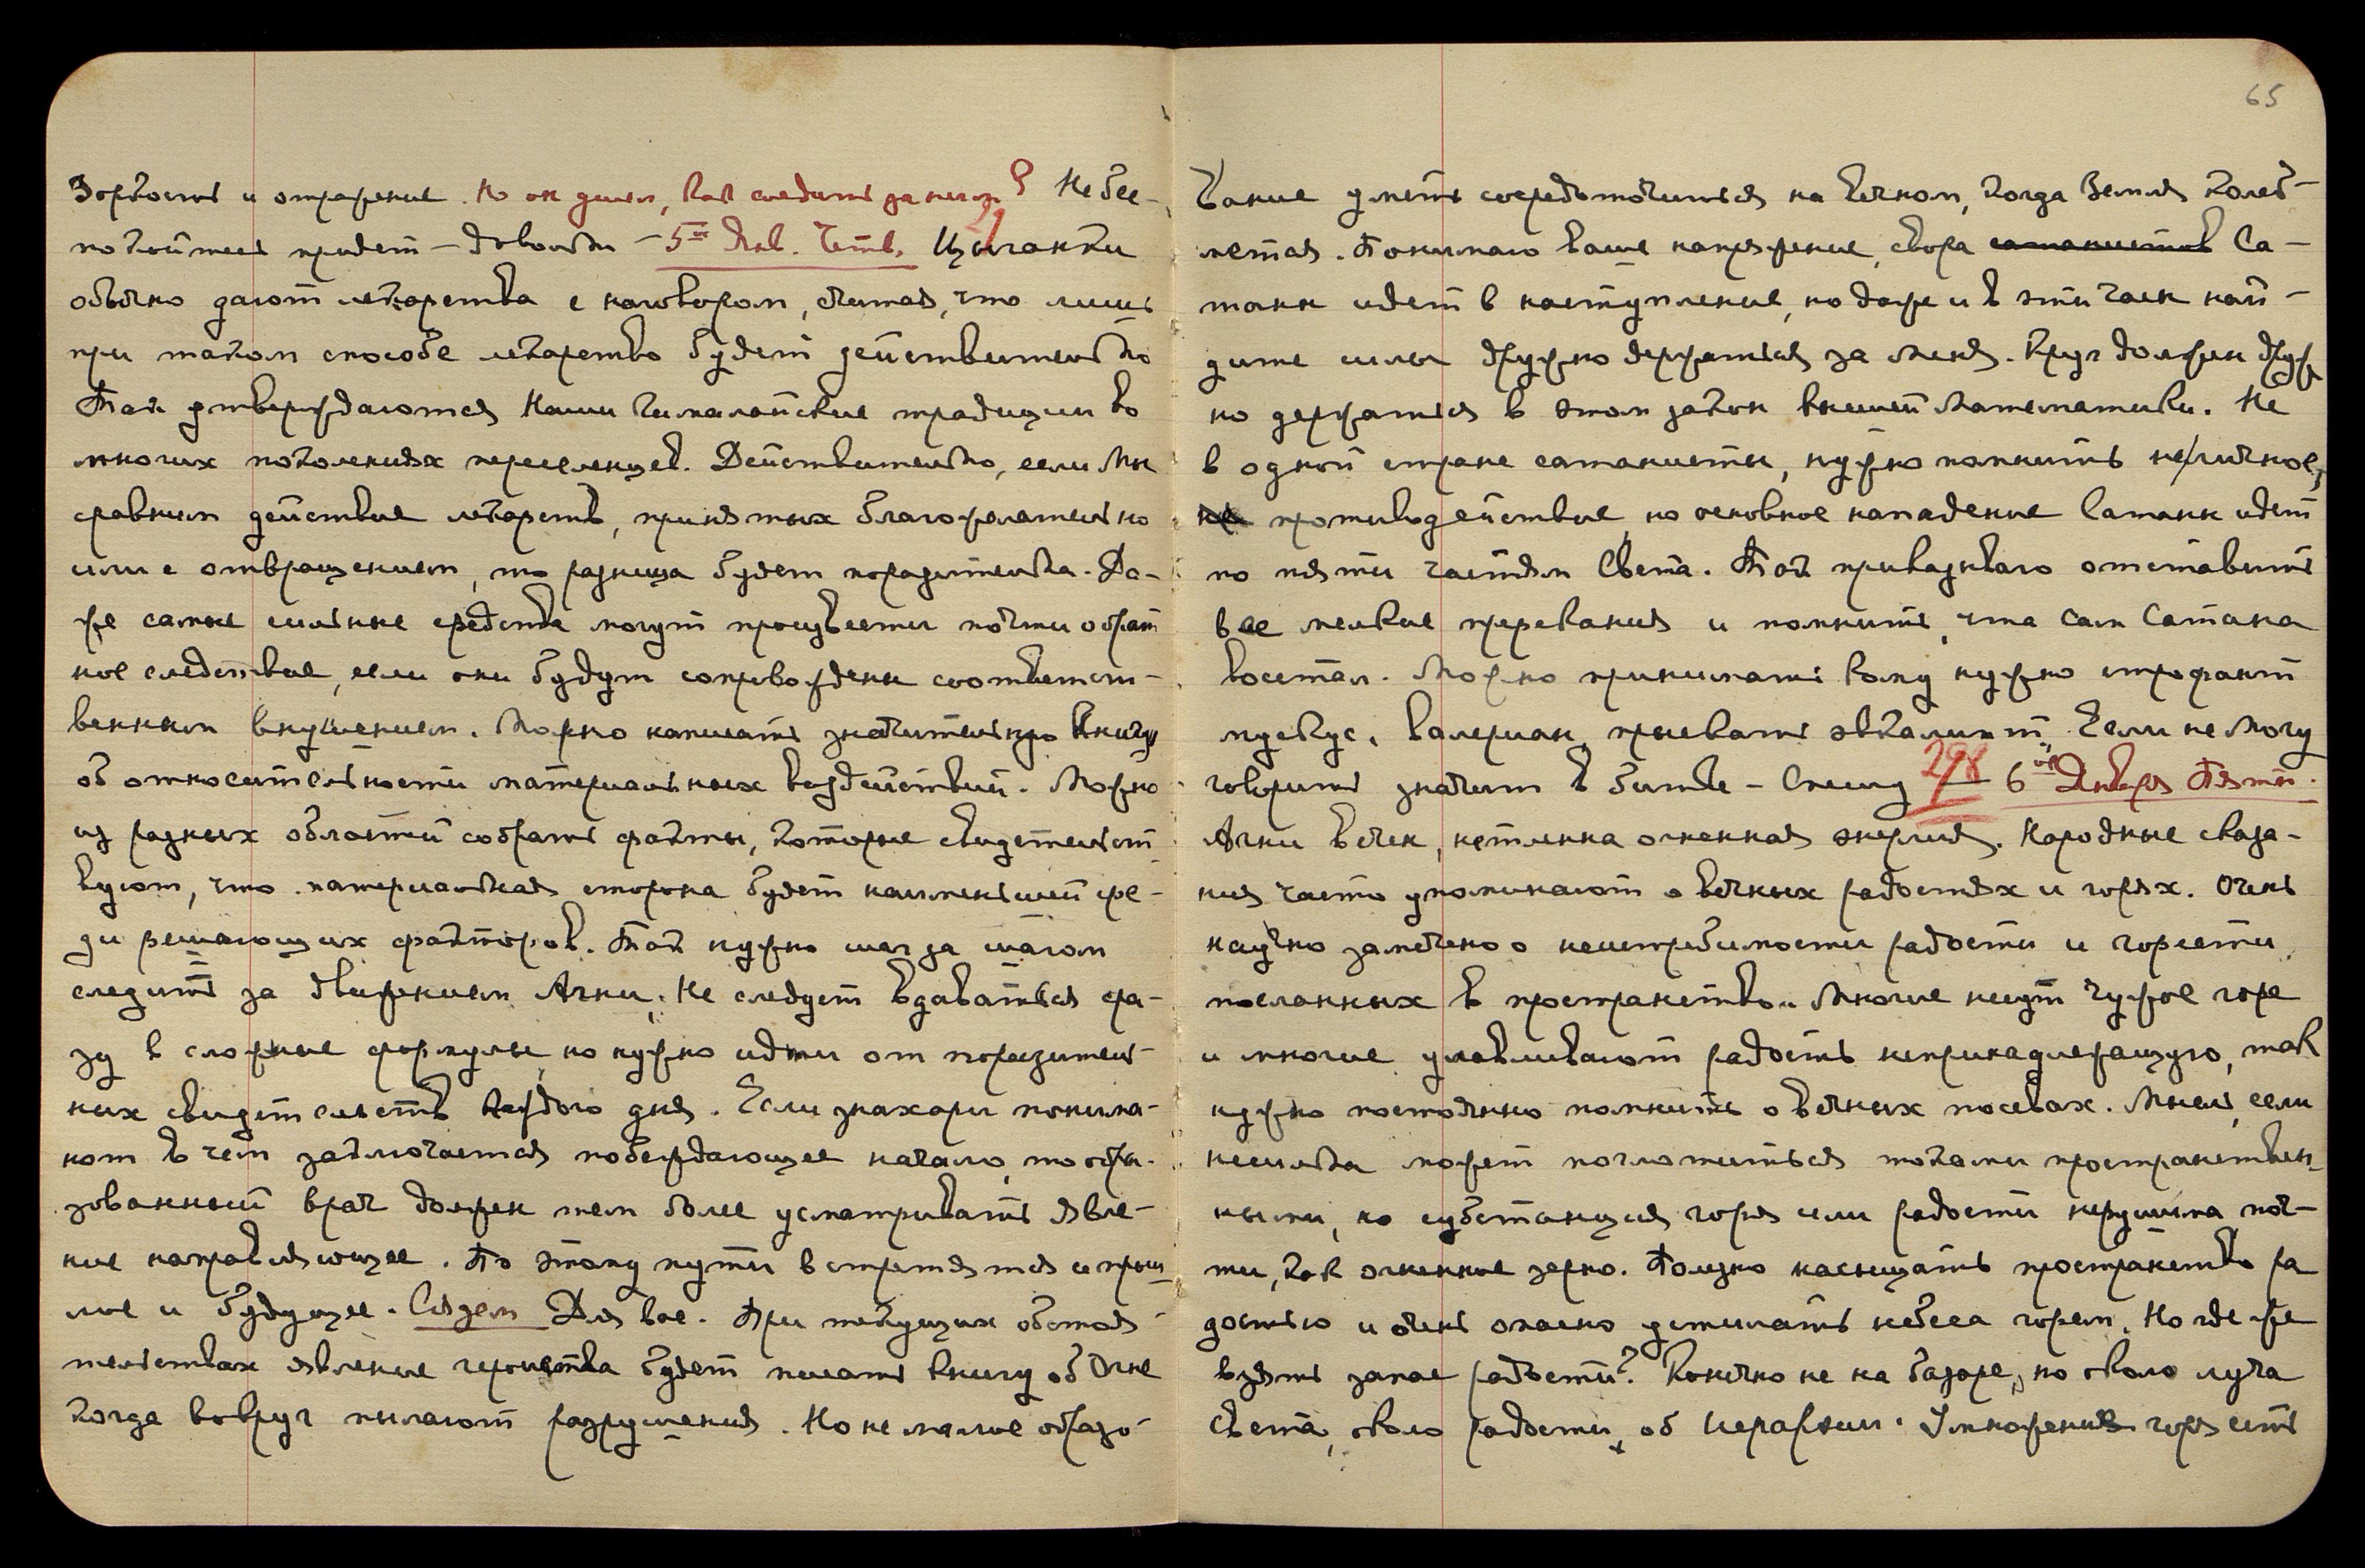 Зоркость и отражение. Но он уехал, как следить за ним? Не бес-
покойтесь придет – довольно – 5ое Янв. Четв. Цыганки
обычно дают лекарства с наговором, считая, что лишь
при таком способе лекарство будет действительно
Так утверждаются Наши Гималайские традиции во
многих поколениях переселенцев. Действительно, если Мы
сравним действие лекарств, принятых благожелательно
или с отвращением, то разница будет поразительна. Да-
же самые сильные средства могут произвести почти обрат
ное следствие, если они будут сопровождены соответст-
венным внушением. Можно написать значительную книгу
об относительности материальных воздействий. Можно
из разных областей собрать факты, которые свидетельст
вуют, что материальная сторона будет наименьшей сре-
ди решающих факторов. Так нужно шаг за шагом
следить за движением Агни. Не следует вдаваться сра-
зу в сложные формулы, но нужно идти от поразитель-
ных свидетельств каждого дня. Если знахари понима-
ют в чем заключается побеждающее начало, то обра-
зованный врач должен тем более усматривать явле-
ние направляющее. По этому пути встретятся и прош
лое и будущее. Сядем Для вас. При текущих обстоя-
тельствах явление геройства будет писать книгу об Огне
когда вокруг пылают разрушения. Но не малое образо-
65
вание уметь сосредоточиться на Вечном, когда Земля колеб-
лется. Понимаю ваше напряжение, свора сатанистов Са-
таны идет в наступление, но даже и в эти часы най-
дите силы дружно держаться за Меня. Круг должен друж
но держаться в этом закон высшей Математики. Не
в одной стране сатанисты, нужно помнить не личное,
не противодействие, но основное нападение Сатаны идет
по пяти частям Света. Так приказываю отставить
все мелкие пререкания и помнить, что сам Сатана
восстал. Можно принимать кому нужно строфант
мускус, валериан, прыскать эвкалипт. Если не Могу
говорить значит в битве – Спешу 298 6ое Января Пятн.
Агни вечен, нетленна огненная энергия. Народные сказа-
ния часто упоминают о вечных радостях и горях. Очень
научно замечено о неистребимости радости и горести,
посланных в пространство. Многие несут чужое горе
и многие улавливают радость непринадлежащую, так
нужно постоянно помнить о вечных посевах. Мысль, если
несильна может поглотиться токами пространствен
ными, но субстанция горя или радости нерушима поч-
ти, как огненное зерно. Полезно насыщать пространство ра
достью и очень опасно устилать небеса горем. Но где же
взять запас радости? Конечно не на базаре, но около луча
света, около радости, об Иерархии. Умножения горя есть